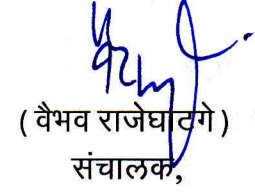 ( वैभव राजेघाटगे )
संचालक,